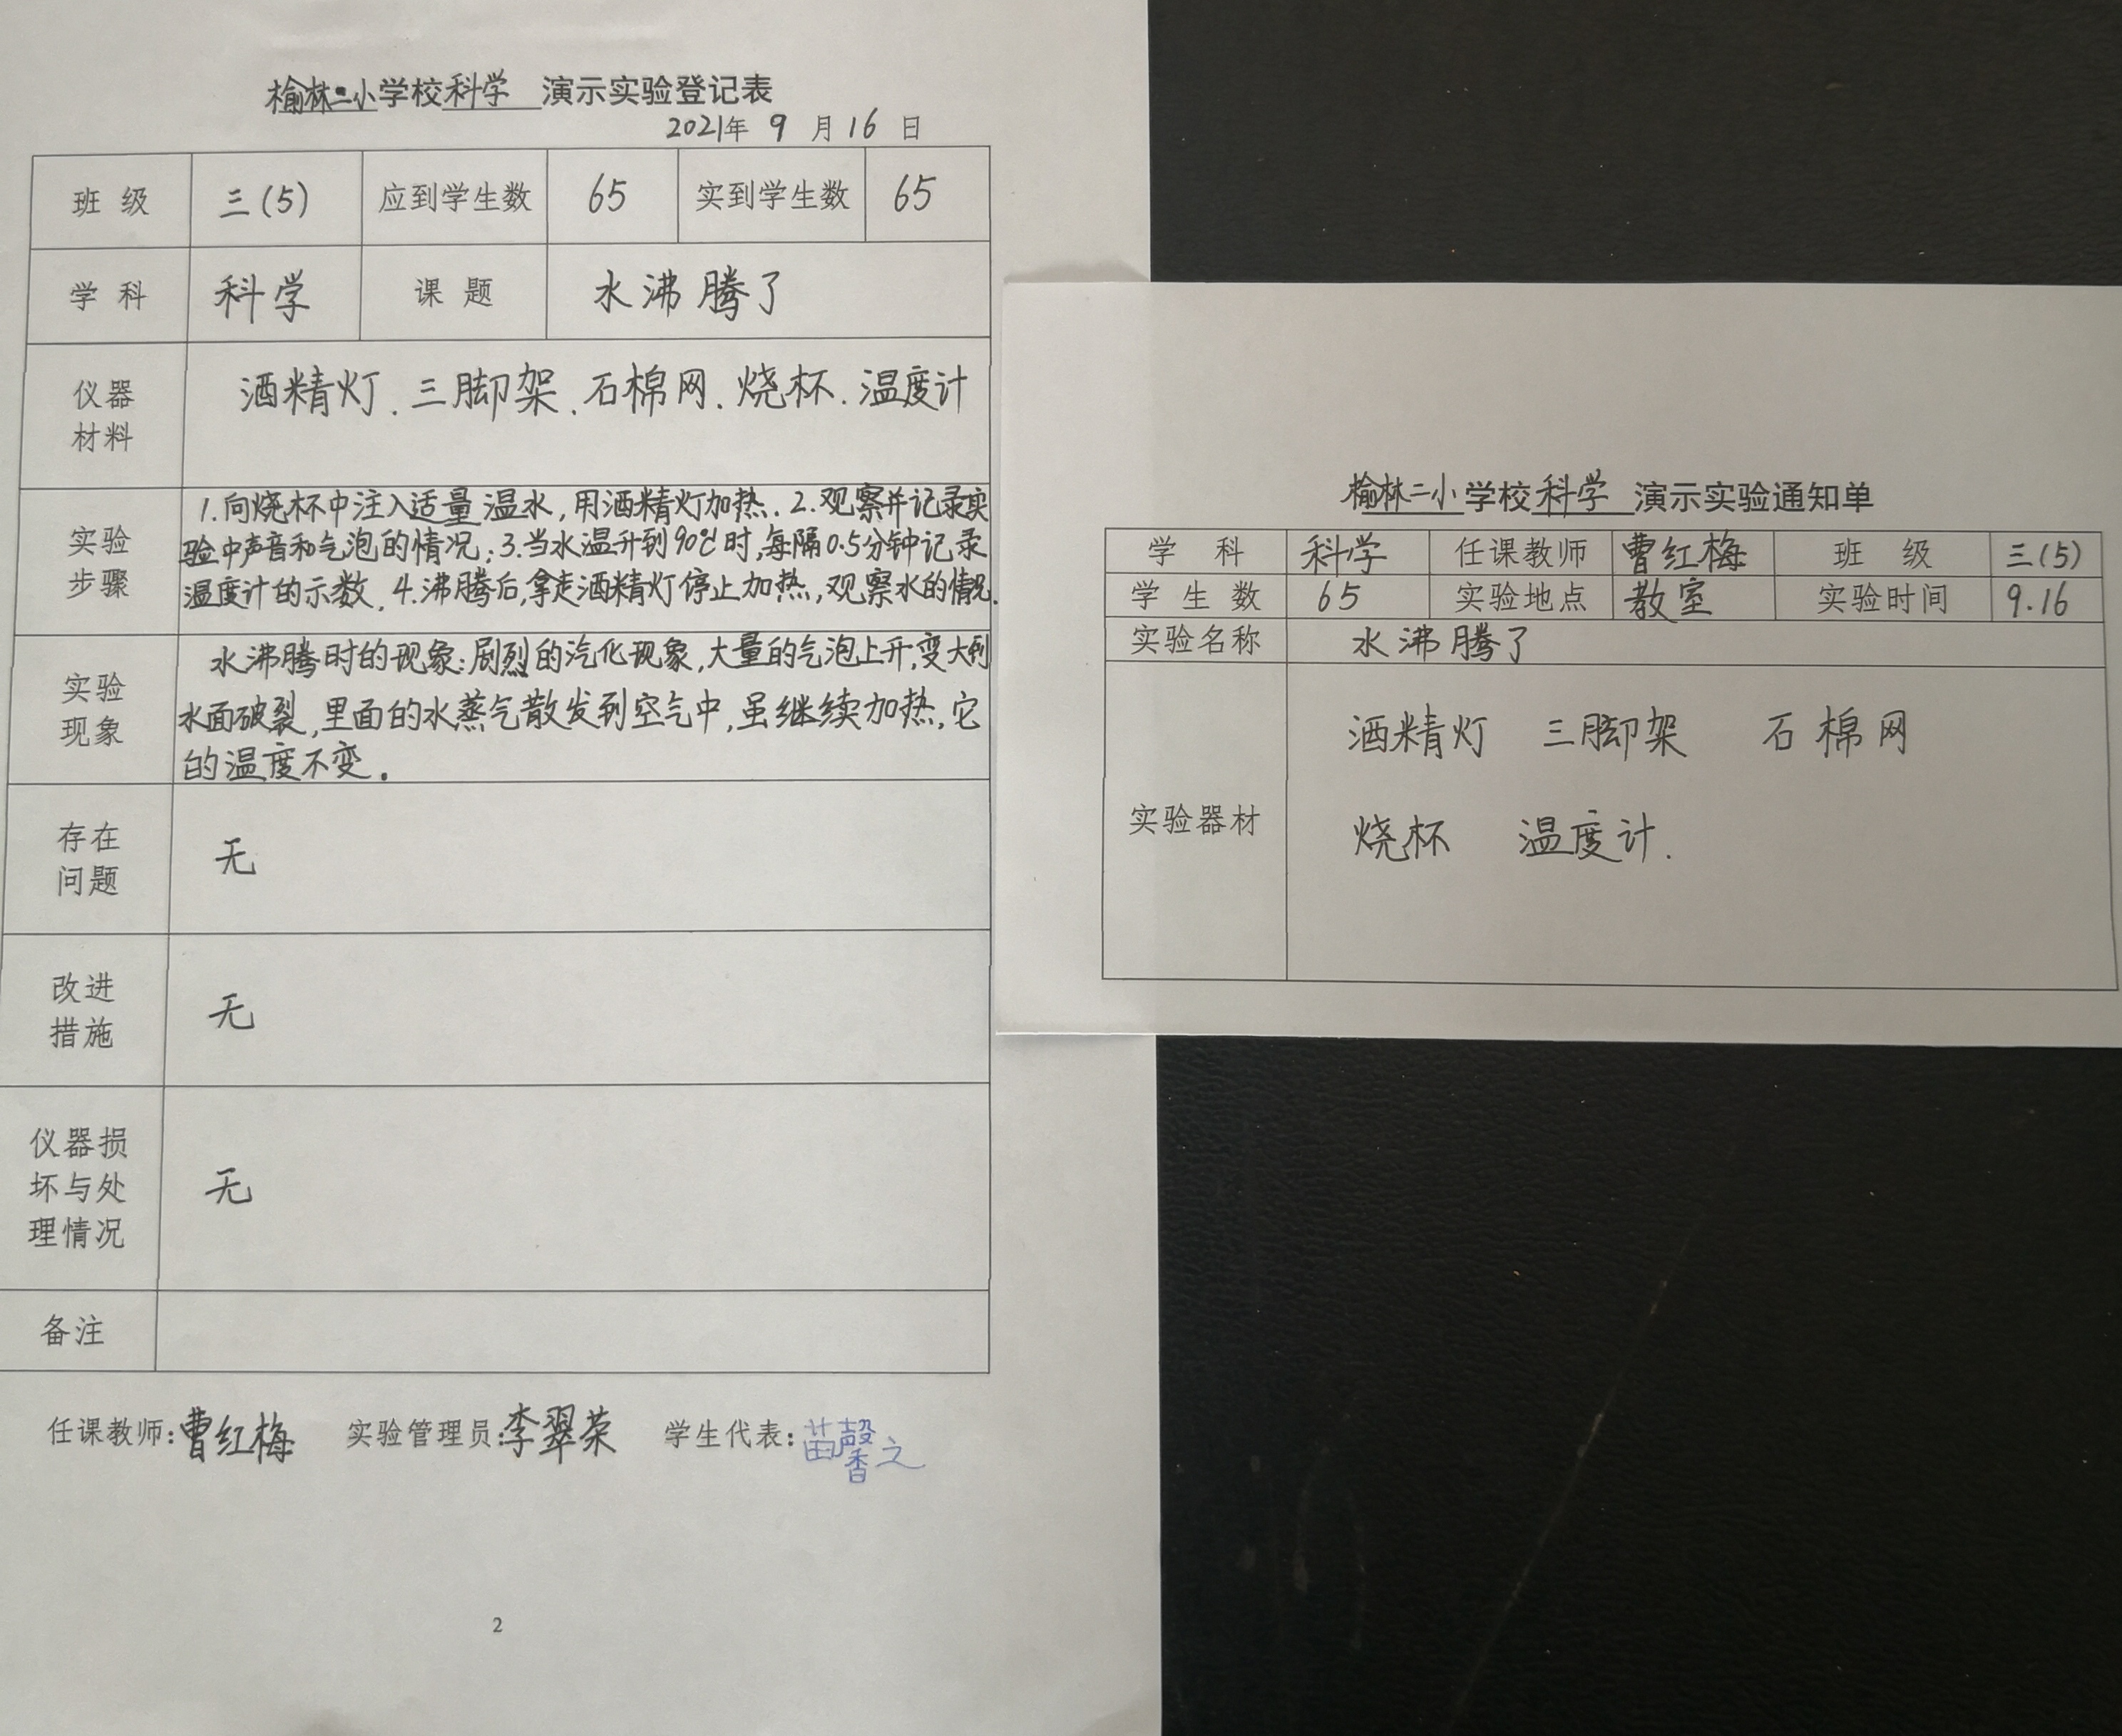 榆林二小学校科学 演示实验登记表
2021年 9 月 16 日
班 级 三(5) 应到学生数 65 实到学生数 65
学 科 科学 课 题 水沸腾了
仪器
材料
酒精灯.三脚架.石棉网.烧杯.温度计
实验
步骤
1.向烧杯中注入适量温水,用酒精灯加热.2.观察并记录实
验中声音和气泡的情况;3.当水温升到90℃时,每隔0.5分钟记录
温度计的示数.4.沸腾后,拿走酒精灯停止加热,观察水的情况.
实验
现象
水沸腾时的现象:剧烈的汽化现象,大量的气泡上升,变大到
水面破裂,里面的水蒸气散发到空气中,虽继续加热,它
的温度不变.
存在
问题
无
改进
措施
无
仪器损
坏与处
理情况
无
备注
任课教师:曹红梅 实验管理员:李翠荣 学生代表:苗馨之
2
榆林二小学校科学 演示实验通知单
学 科 科学 任课教师 曹红梅 班 级 三(5)
学 生 数 65 实验地点 教室 实验时间 9.16
实验名称 水沸腾了
实验器材
酒精灯 三脚架 石棉网
烧杯 温度计.